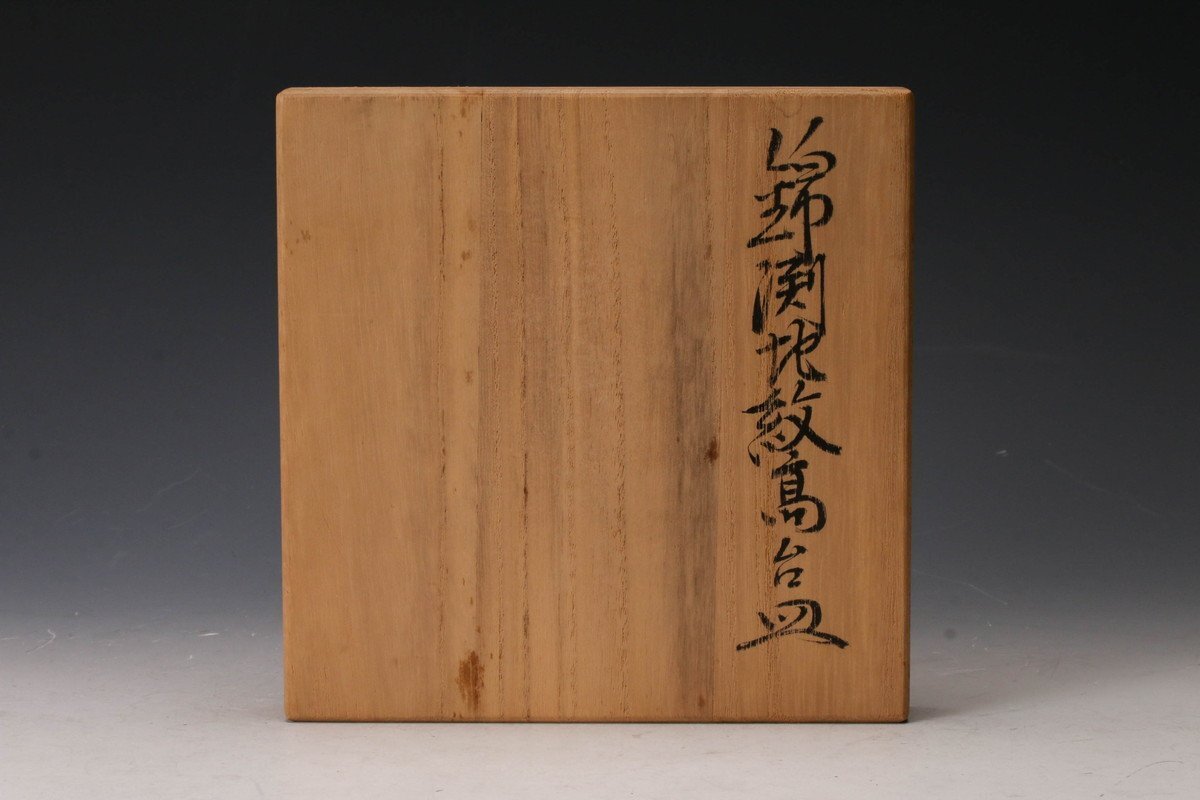 錦渕地紋高台皿